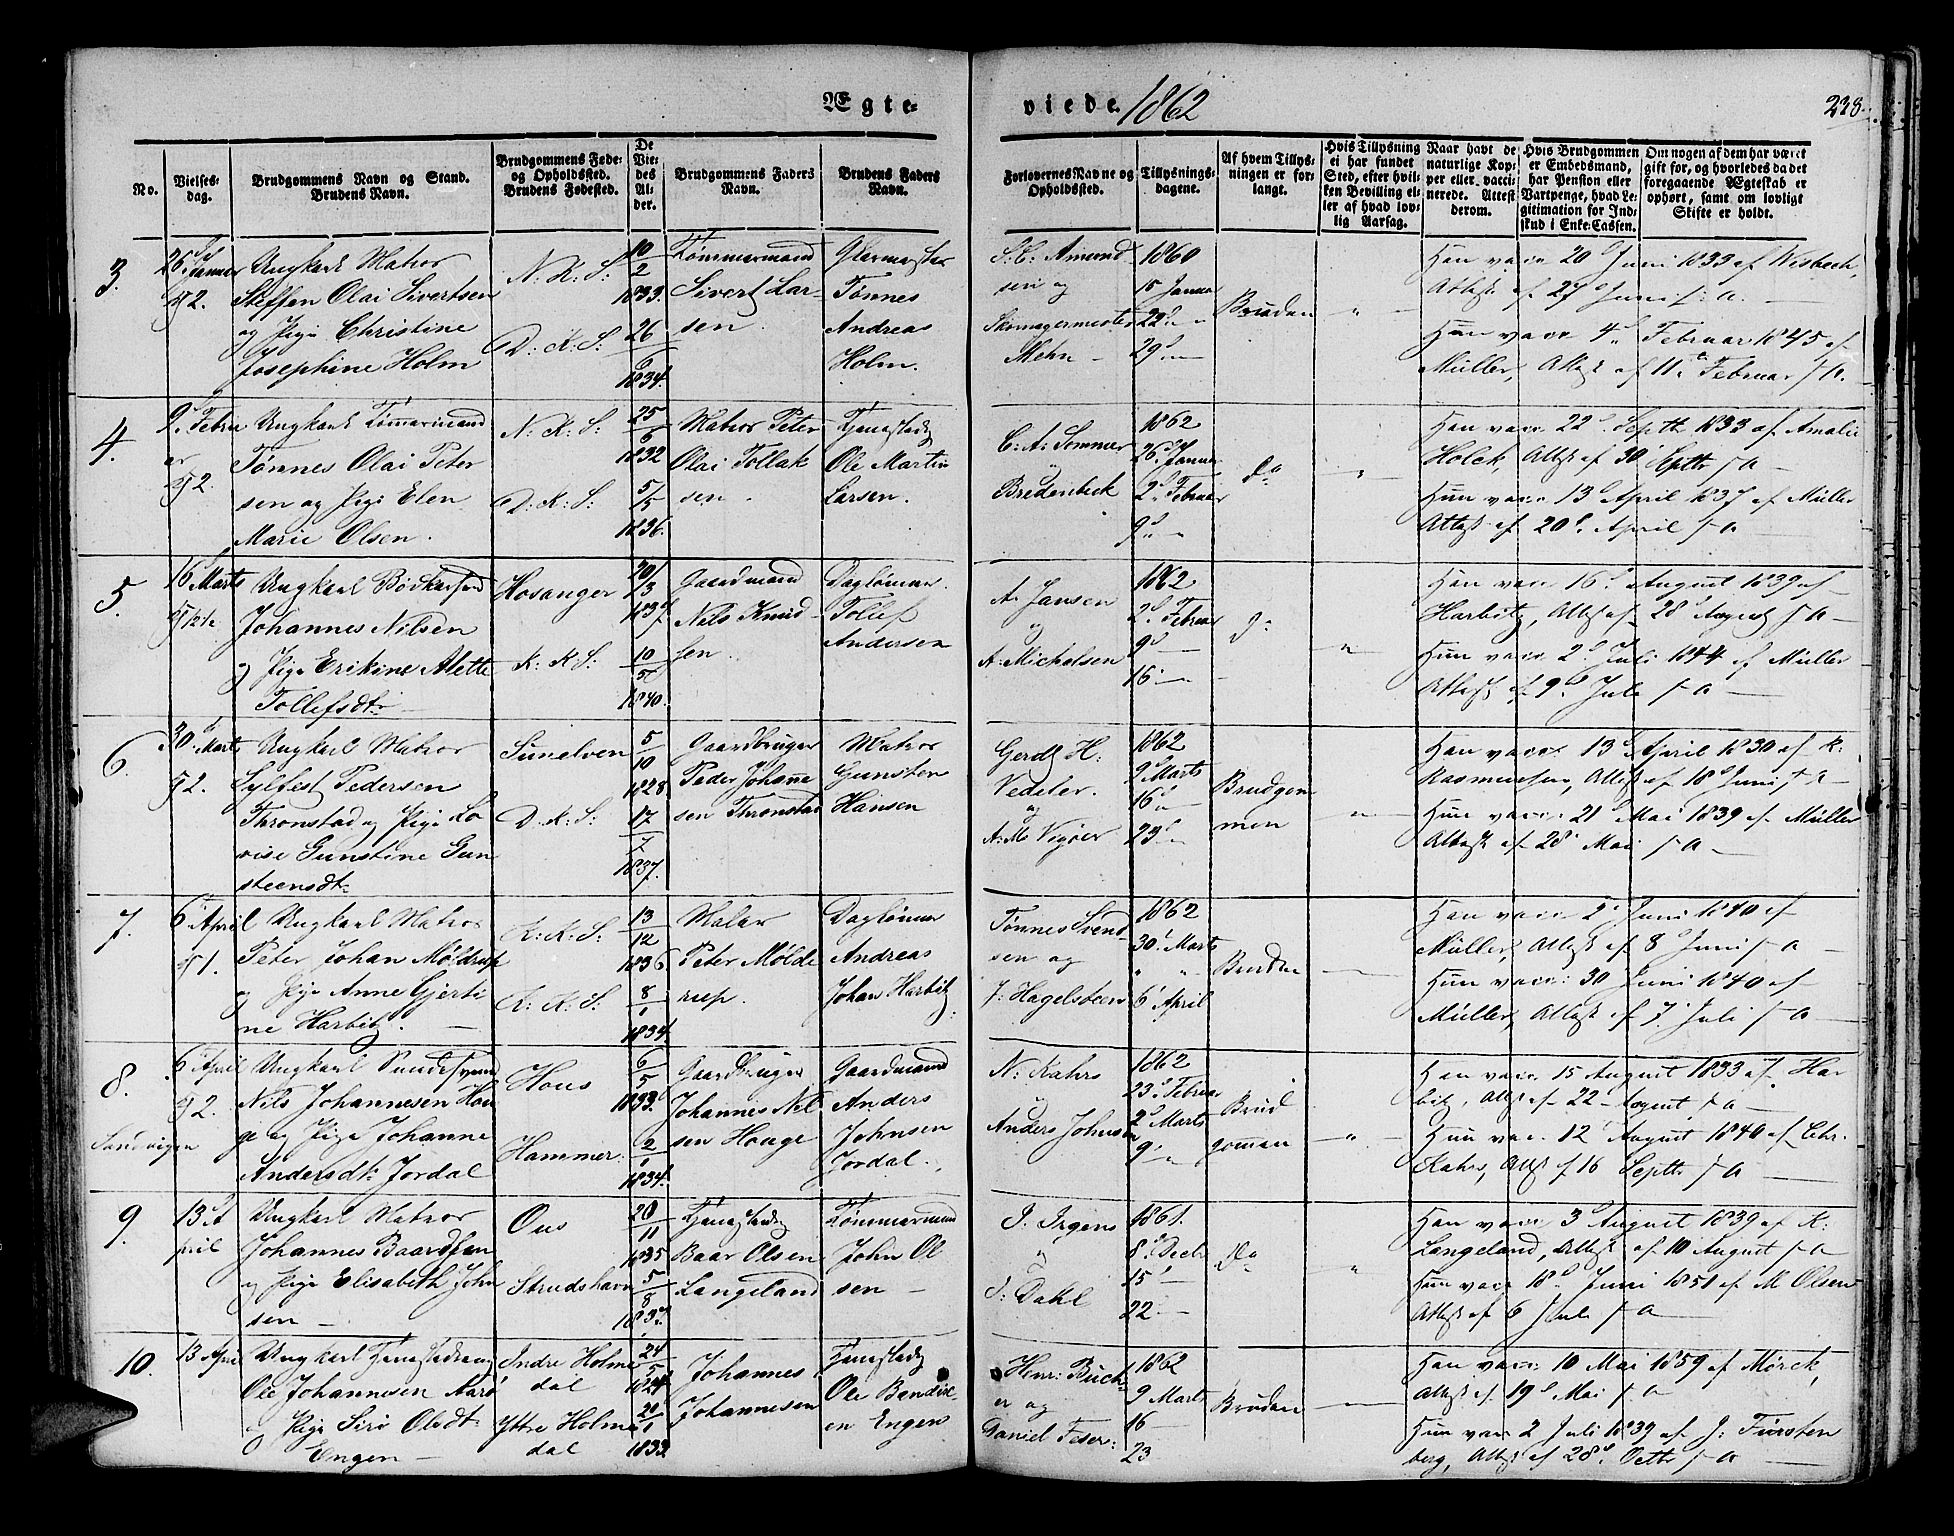 Ægte-
viede. 1862
228.
No.
Vielses-
dag.
Brudgommens Navn og Stand.
Brudens Navn.
Brudgommens Føde-
og Opholdssted.
Brudens Fødested.
De
Vie-
des
Al-
der.
Brudgommens Faders
Navn.
Brudens Faders
Navn.
Forlovernes Navne og
Opholdssted.
Tillysnings-
dagene.
Af hvem Tillys-
ningen er for-
langt.
Hvis Tillysning
ei har fundet
Sted, efter hvil-
ken Bevilling el-
ler af hvad lov-
lig Aarsag.
Naar havt de
naturlige Kop-
per eller vacci-
nerede. Attest
derom.
Hvis Brudgommen
er Embedsmand,
har Pension eller
Vartpenge, hvad Le-
gitimation for Ind-
skud i Enke-Cassen.
Om nogen af dem har været
gift før, og hvorledes da det
foregaaende Ægteskab er
ophørt, samt om lovligt
Skifte er holdt.
3.
26. Januar
Ungkarl Matros
Steffen Olai Sivertsen
og Pige Christine
Josephine Holm
N: K: S:
D: K: S:
10/2
1833.
26/6
1834.
Tømmermand
Sivert Lar-
sen.
Glarmester
Tønnes
Andreas
Holm.
S. C. Amund
sen og
Skomagermester
Mehn
1860
15 Januar
22 "
29 "
Bruden
"
Han vacc. 20 Juni 1833 af Wisbech,
Attest af 27 Juni s. a.
Hun vacc. 4 Februar 1845 af
Müller, Attest af 11 Februar s. a.
4.
9. Febru
ar
Ungkarl Tømmermand
Tønnes Olai Peter
sen og Pige Elen
Marie Olsen.
N: K: S:
D: K: S:
25/6
1832
5/5
1836.
Matros Peter
Olai Tollak
sen.
Ole Martin
Larsen.
C: A: Sommer
Bredenbeck
1862
26 Januar
2 Februar
9 "
do
"
Han vacc. 22 Septbr 1833 af Amalie
Holck, Attest af 30 Septbr s. a
Hun vacc. 13 April 1837 af Müller
Attest af 20 April s. a
5.
16 Marts
Ungkarl Bødkersvend
Johannes Nilsen
og Pige Erikine Alette
Tollefsdtr
Hosanger
K: K: S:
20/3
1837
10/5
1840.
Gaardmand
Nils Knud
sen.
Daglønner
Tollef
Andersen
A. Jansen
og
A. Michelsen
1862
2 Februar
9
16
do
"
Han vacc. 16 August 1839 af
Harbitz, Attest af 28 August s. a
Hun vacc. 2 Juli 1844 af Müller
Attest af 9 Juli s. a
6.
30. Marts
Ungkarl Matros
Sylfest Pedersen
Thronstad og Pige Lo
vise Gunstine Gun
steensdtr
Sunelven
D: K: S:
5/10
1828
17/7
1837.
Gaardbruger
Peder Johanne
sen Thronstad
Matros
Gunsten
Hansen
Gerdt H.
Vedeler.
og
1862
9 Marts
16
23
Brudgom
men
"
Han vacc. 13 April 1830 af R.
Rasmussen, Attest af 18 Juni s. a
Hun vacc. 21 Mai 1839 af Müller
Attest af 28 Mai s. a
7.
6 April
Ungkarl Matros
Peter Johan Møldrup
og Pige Anne Gjerti
ne Harbitz.
K: K: S:
K: K: S:
13/12
1836
8/1
1834
Maler
Peter Mølde
rup.
Daglønner
Andreas
Johan Harbitz
Tønnes Svend
sen og
J. Hagelsteen
1862
30 Marts
" "
6 April
Bruden
Han vacc. 2 Juni 1840 af
Müller, Attest af 8 Juni s. a
Hun vacc. 30 Juni 1840 af
Müller, Attest af 7 Juli s. a
8.
6 April
Sandvigen
Ungkarl
Nils Johannesen Hau
ge og Pige Johanne
Andersdtr Jordal
Hous
Hammer.
6/5
1833.
2/1
1834.
Gaardbruger
Johannes Nil
sen Hauge
Gaardmand
Anders
Johnsen
Jordal.
N. Kahrs
og
Anders Johnsen
1862
23 Februar
2 Marts
9 "
Brud
gommen
"
Han vacc. 15 August 1833 af Har
bitz, Attest af 22 August s. a
Hun vacc. 12 August 1840 af Chr.
Kahrs, Attest af 16 Septbr s. a
9.
13 A
pril
Ungkarl Matros
Johannes Baardsen
og Pige Elisabeth John
sen
Ous
Strudshavn
20/11
1835
5/8
Baar Olsen
Langeland
Tømmermand
John Ol
sen
J. Irgens
og
J. Dahl
1861.
8 Decbr
15
22
Do
"
Han vacc. 3 August 1839 af K.
Langeland, Attest af 10 August s. a
Hun vacc. 18 Juni 1851 af M. Olsen
Attest af 6 Juli s. a
10.
13 April
Ungkarl
Ole Johannesen Aarø
og Pige Siri Olsdtr
Engen
Indre Holme
dal
Ytre Holme
dal
24/5
1824
20/1
1833
Johannes
Johannesen
Ole Bendix
en Engen
Henr: Buch
er og
Daniel Feser:
1862
9 Marts
16
23
Bruden
Han vacc. 10 Mai 1859 af Mørck,
Attest af 19 Mai s. a
Hun vacc. 2 Juli 1839 af J. Fürsten
berg, Attest af 28 Octbr s. a